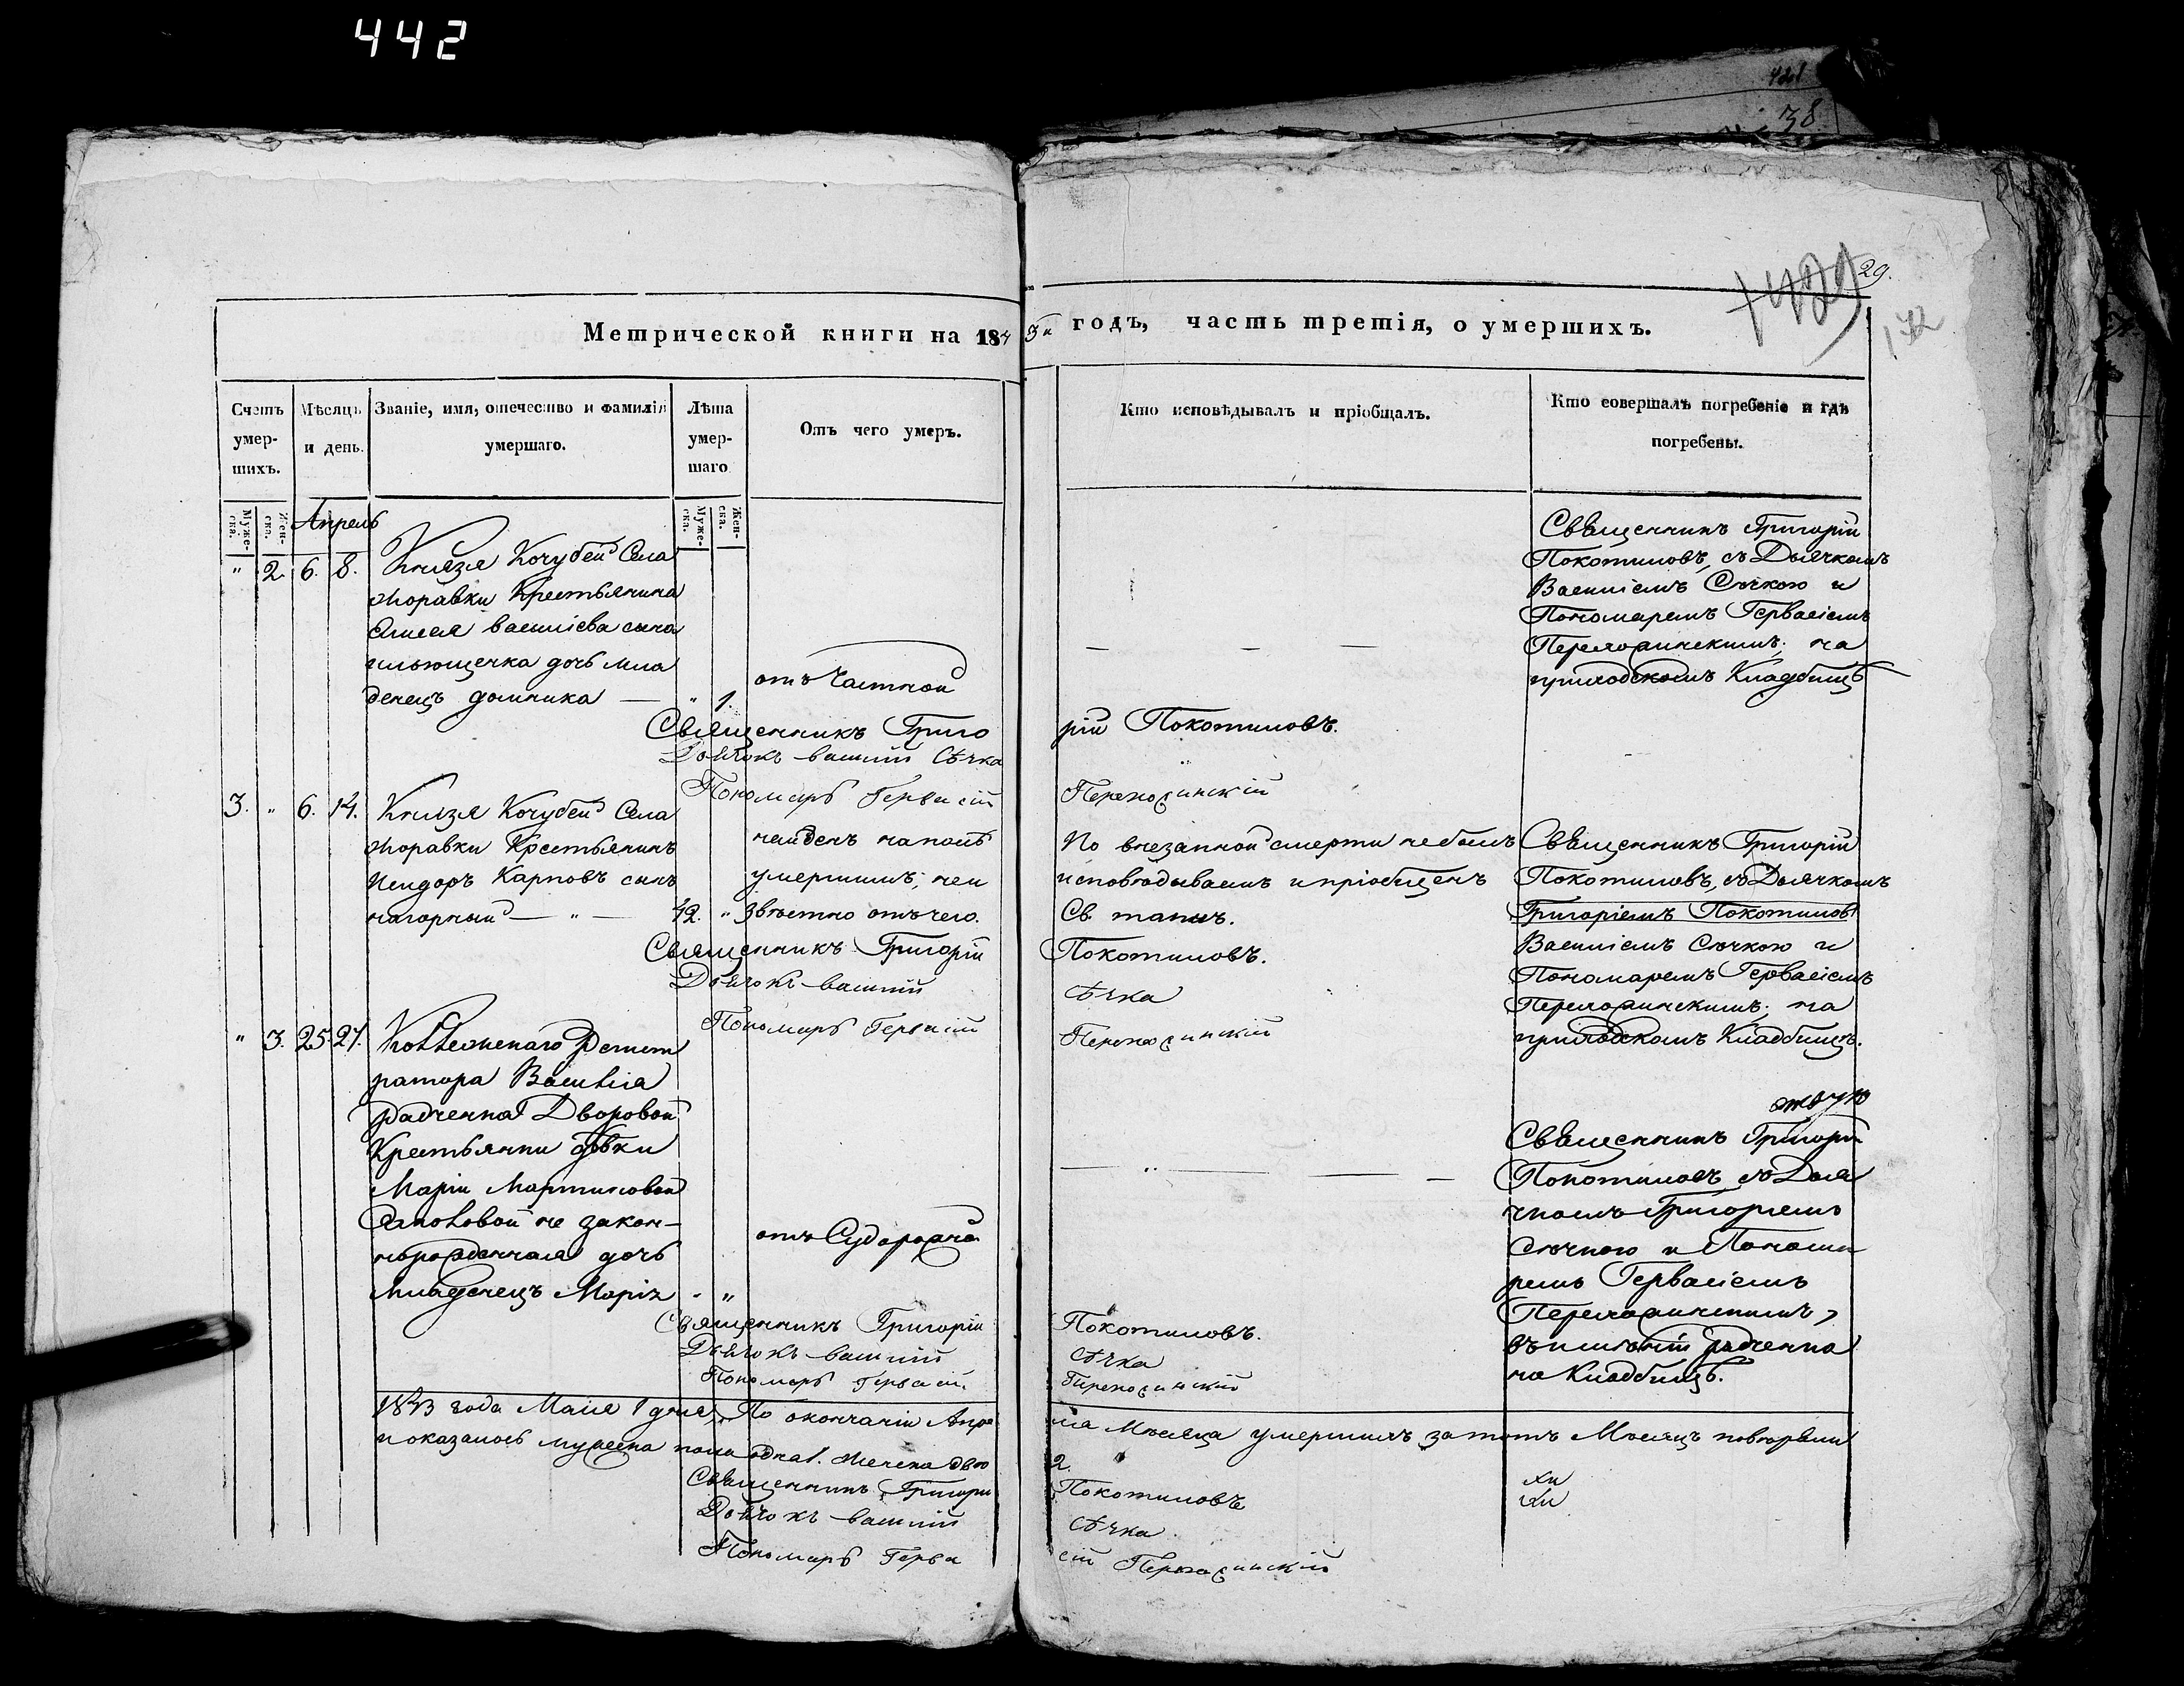 442
421
38
29.
172
Метрической книги на 1843й годъ, часть третія, о умершихъ.
Счетъ умер-шихъ.
Мѣсяцъ и день.
Званіе, имя, отечество и фамилія умершаго.
Лѣта умер-шаго
Отъ чего умеръ.
Кто исповѣдывалъ и пріобщалъ.
Кто совершалъ погребеніе и гдѣ погребены.
Муже-ска.
Жен-ска.
Муже-ска.
Жен-ска.
Апрель
" 2. 6. 8.
Князя Кочубей Села
Жоравки Крестьянина
Василіева сына
дочь мла
денецъ домника — " 1.
отъ Чахтной
— — —
Священникъ Григорій
Покотиловъ, съ Дьячкомъ
Василіемъ Сѣчкою и
Пономаремъ Гервасіемъ
на
приходскомъ Кладбищѣ
Священникъ Григорій Покотиловъ.
Дьячокъ василій Сѣчка
Пономарь Гервасій
3. " 6. 14.
Князя Кочубей Села
Жоравки Крестьянинъ
Исидоръ Карповъ сынъ
нагорный — " — 42. "
найденъ на полѣ
умершимъ, неи
звѣстно отъ чего.
По внезапной смерти не былъ
исповѣдываемъ и пріобщенъ
Св. таинъ.
Священникъ Григорій
Покотиловъ, съ Дьячкомъ
Григоріемъ Покотилов
Василіемъ Сѣчкою и
Пономаремъ Гервасіемъ
на
приходскомъ Кладбищѣ.
Священникъ Григорій Покотиловъ.
Дьячокъ василій Сѣчка
Пономарь Гервасій
" 3. 25. 27.
Коллежскаго Регист
ратора Василія
Радченка Дворовой
Крестьянки дѣвки
Маріи Мартиновой
не закон-
норожденная дочь
Младенецъ Марія " "
отъ Судорожной
— " — — —
Священникъ Григорій
Покотиловъ, съ Дья
чкомъ Григоріемъ
Сѣчкою и Понома
ремъ Гервасіемъ
въ имѣніи Радченка
на Кладбищѣ.
Священникъ Григорій Покотиловъ.
Дьячокъ василій Сѣчка
Пономарь Гервасій
1843 года Маія 1 дня, По окончаніи Апреля Мѣсяца умершихъ за тотъ Мѣсяцъ по
показалось мужеска пола одна 1. женска две 2.
Священникъ Григорій Покотиловъ
Дьячокъ василій Сѣчка
Пономарь Гервасій